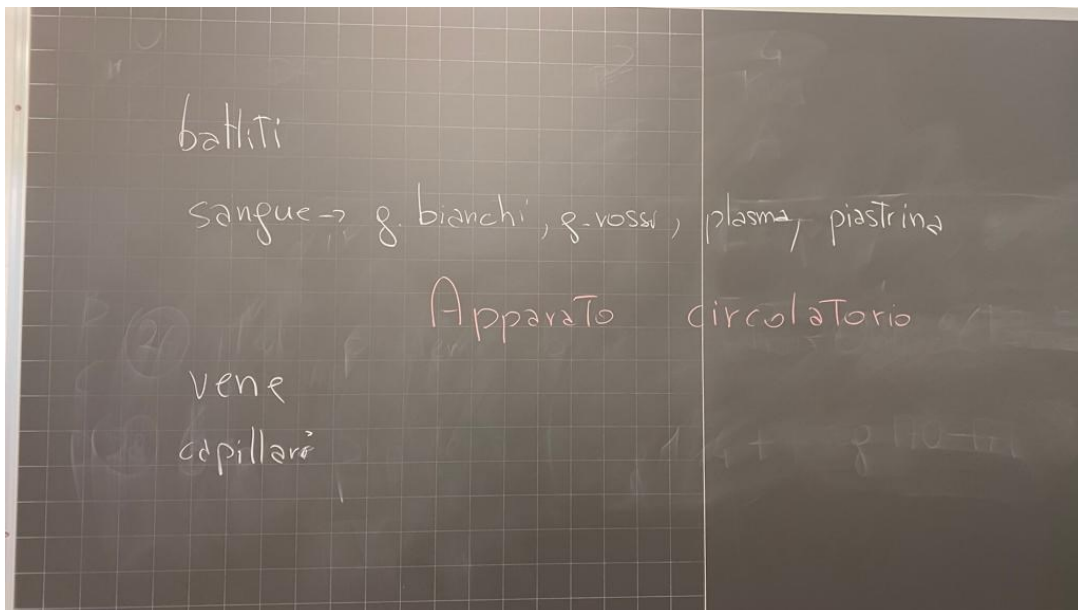 battiti
sangue → g. bianchi, g. rossi, plasma, piastrina
Apparato circolatorio
vene
capillari